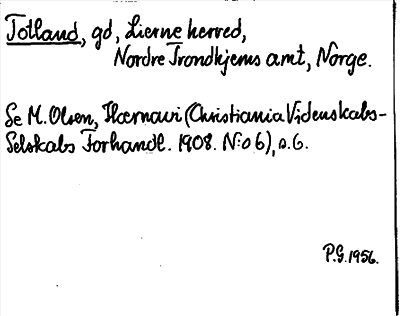 Totland, gd, Lierne herred,
Nordre Trondhjems amt, Norge.
Se M. Olsen, Hærnavi (Christiania Videnskabs-
Selskabs Forhandl. 1908. No 6), s. 6.
P.G. 1956.